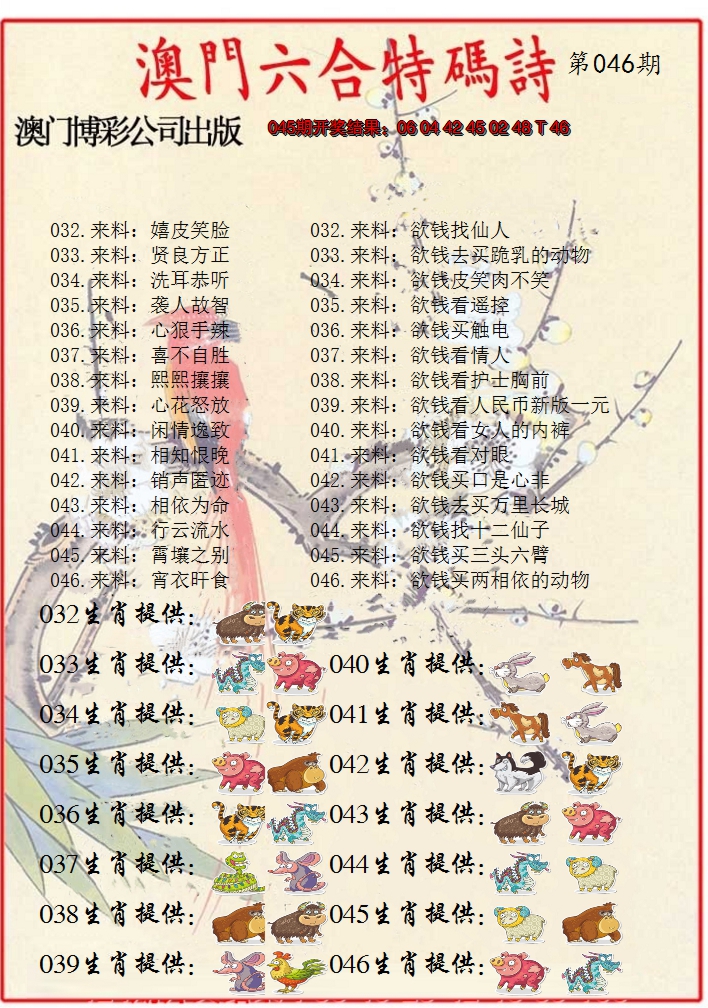 澳門六合特碼詩 第046期
澳门博彩公司出版 045期开奖结果：06 04 42 45 02 48 T 46
032.来料：嬉皮笑脸 032.来料：欲钱找仙人
033.来料：贤良方正 033.来料：欲钱去买跪乳的动物
034.来料：洗耳恭听 034.来料：欲钱皮笑肉不笑
035.来料：袭人故智 035.来料：欲钱看遥控
036.来料：心狠手辣 036.来料：欲钱买触电
037.来料：喜不自胜 037.来料：欲钱看情人
038.来料：熙熙攘攘 038.来料：欲钱看护士胸前
039.来料：心花怒放 039.来料：欲钱看人民币新版一元
040.来料：闲情逸致 040.来料：欲钱看女人的内裤
041.来料：相知恨晚 041.来料：欲钱看对眼
042.来料：销声匿迹 042.来料：欲钱买口是心非
043.来料：相依为命 043.来料：欲钱去买万里长城
044.来料：行云流水 044.来料：欲钱找十二仙子
045.来料：霄壤之别 045.来料：欲钱买三头六臂
046.来料：宵衣旰食 046.来料：欲钱买两相依的动物
032生肖提供：
033生肖提供： 040生肖提供：
034生肖提供： 041生肖提供：
035生肖提供： 042生肖提供：
036生肖提供： 043生肖提供：
037生肖提供： 044生肖提供：
038生肖提供： 045生肖提供：
039生肖提供： 046生肖提供：